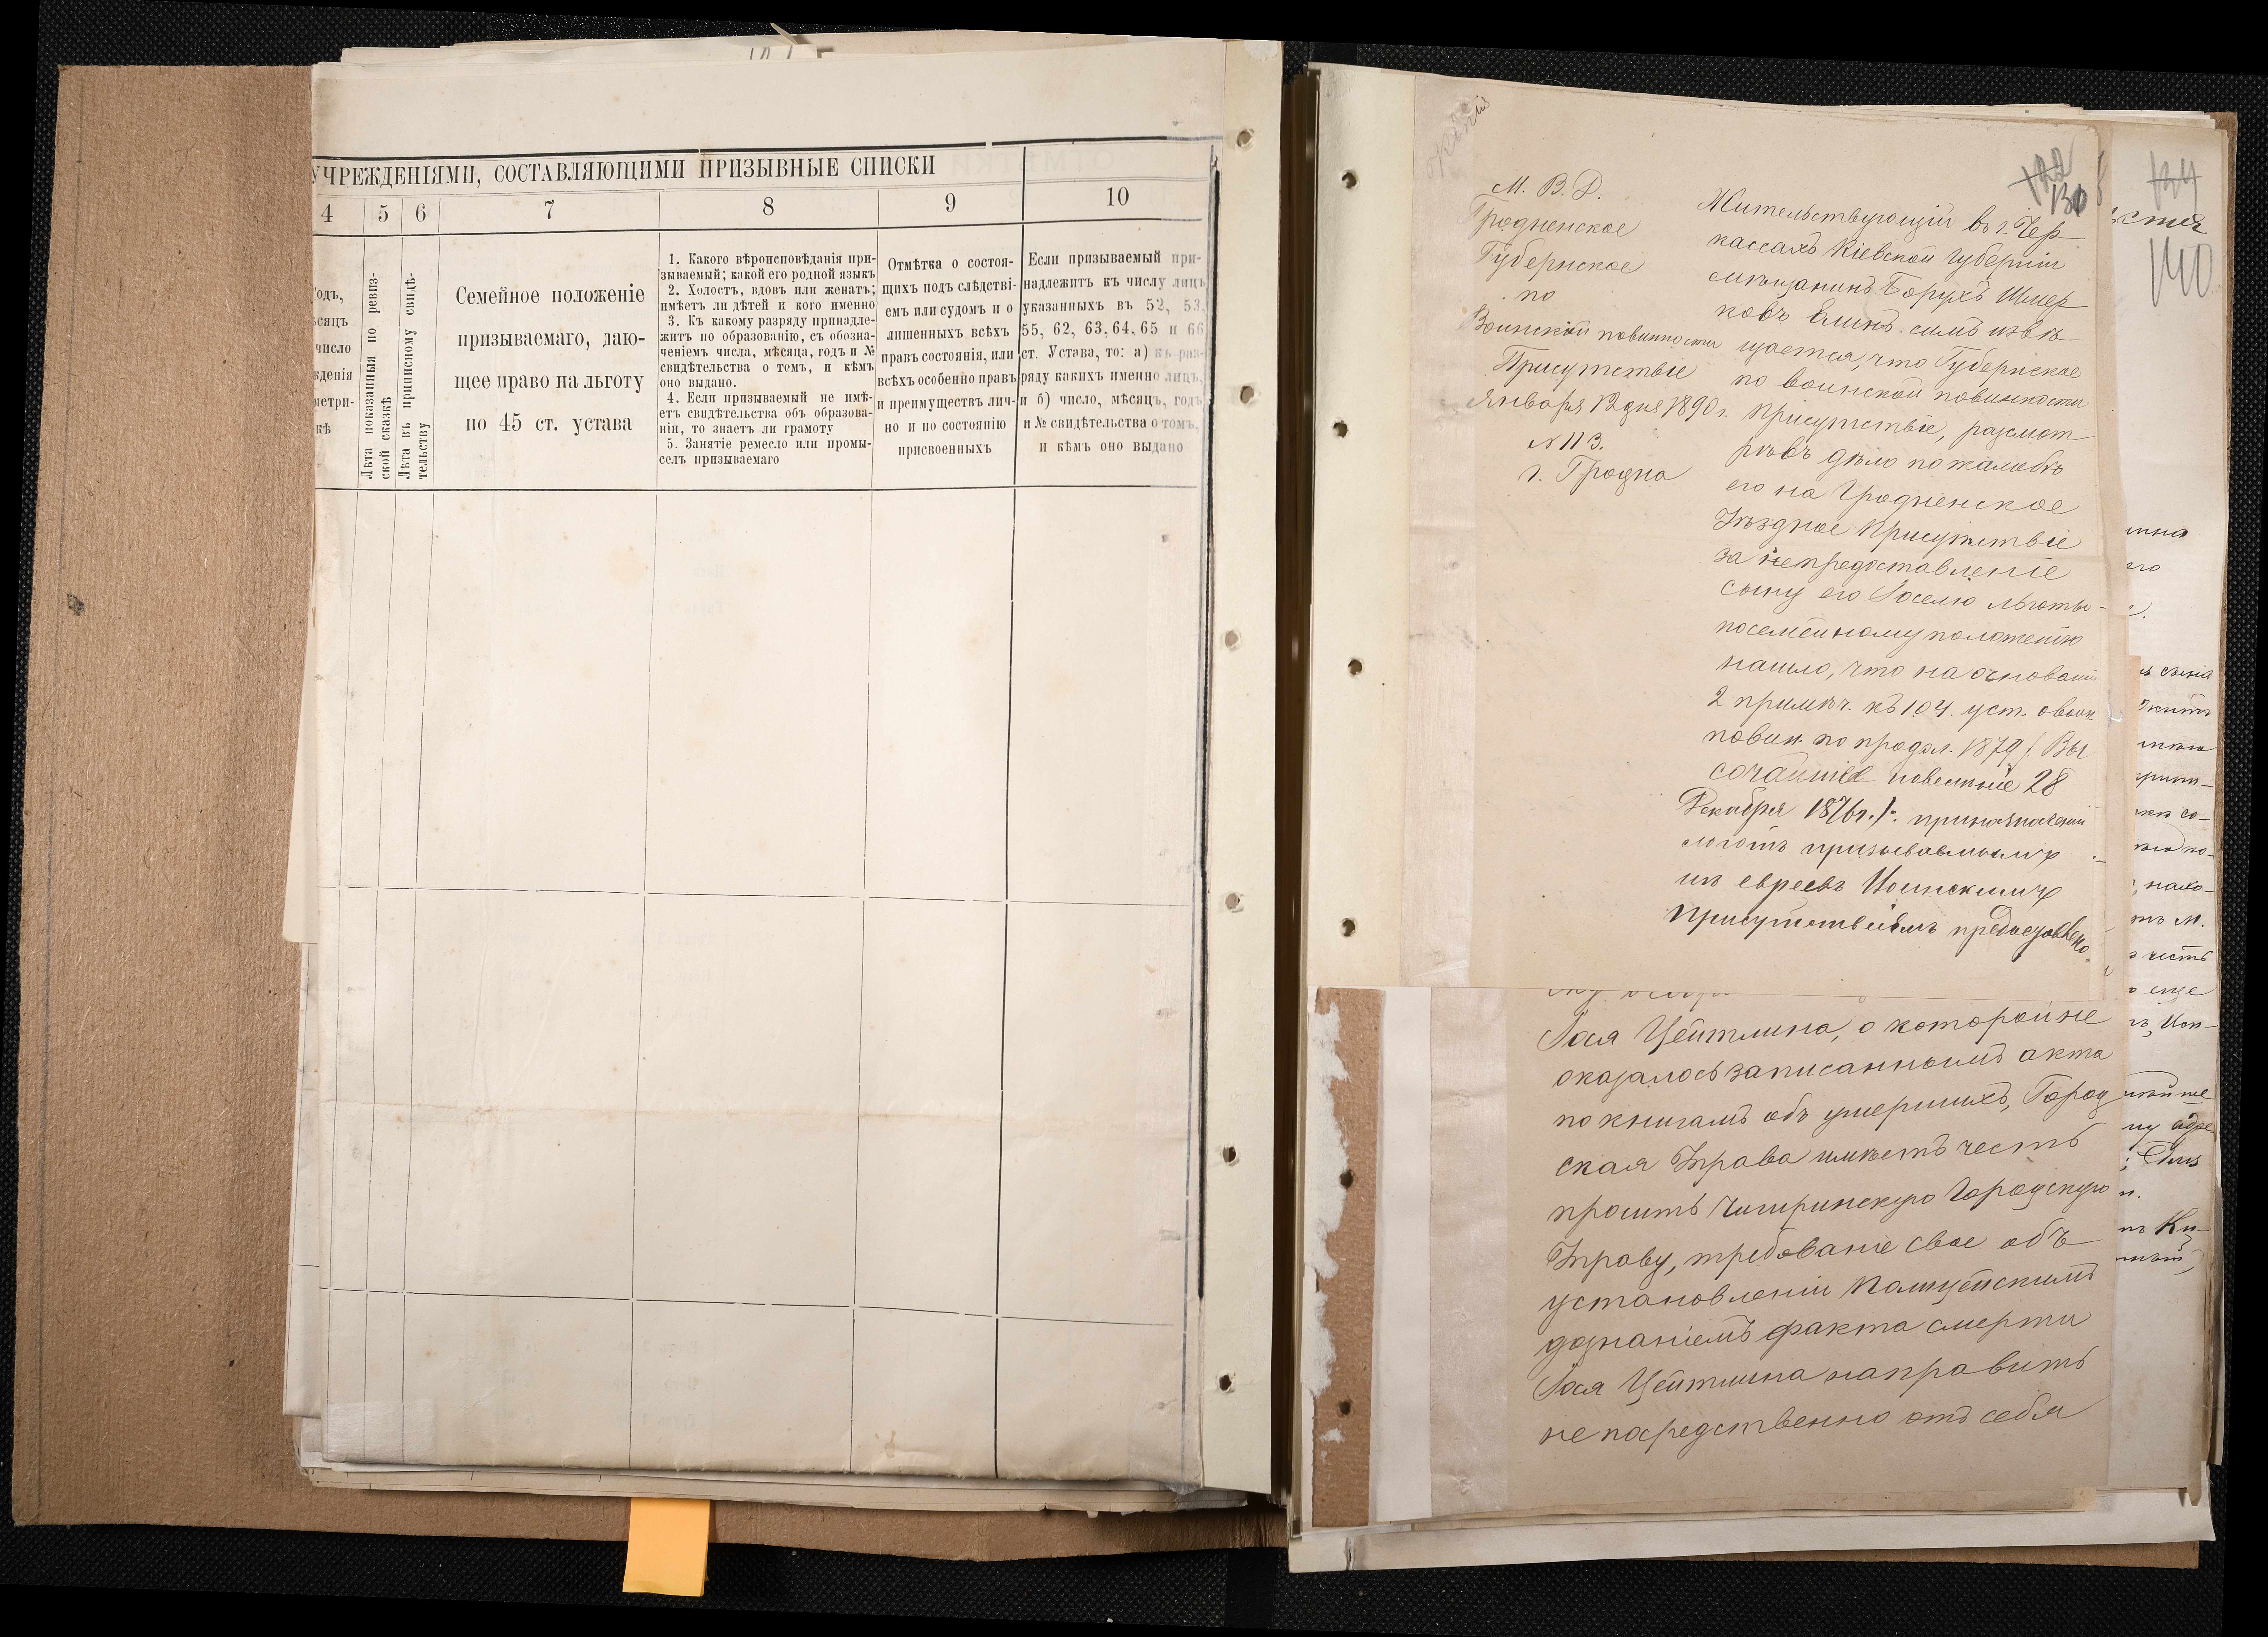 УЧРЕЖДЕНІЯМИ, СОСТАВЛЯЮЩИМИ ПРИЗЫВНЫЕ СПИСКИ
4 5 6 7 8 9 10
Лѣта показанныя по ревиз-
ской сказкѣ
Лѣта въ приписному свидѣ-
тельству
Семейное положеніе
призываемаго, даю-
щее право на льготу
по 45 ст. устава
1. Какого вѣроисповѣданія при-
зываемый; какой его родной языкъ
2. Холостъ, вдовъ или женатъ;
имѣетъ ли дѣтей и кого именно
3. Къ какому разряду принадле-
житъ по образованію, съ обозна-
ченіемъ числа, мѣсяца, годъ и №
свидѣтельства о томъ, и кѣмъ
оно выдано.
4. Если призываемый не имѣ-
етъ свидѣтельства объ образова-
ніи, то знаетъ ли грамоту
5. Занятіе ремесло или промы-
селъ призываемаго
Отмѣтка о состоя-
щихъ подъ слѣдстві-
емъ или судомъ и о
лишенныхъ всѣхъ
правъ состоянія, или
всѣхъ особенно правъ
и преимуществъ лич-
но и по состоянію
присвоенныхъ
Если призываемый при-
надлежитъ къ числу лицъ
указанныхъ въ 52, 53,
55, 62, 63, 64, 65 и 66
ст. Устава, то: а) къ раз-
ряду какихъ именно лицъ,
и б) число, мѣсяцъ, годъ
и № свидѣтельства о томъ,
и кѣмъ оно выдано
М. В. Д.
Гродненское
Губернское
по
Воинской повинности
Присутствіе
Января 12 дня 1890 г.
N 113.
г. Гродна
130
Жительствующій въ г. Чер
кассахъ Кіевской губерніи
мѣщанинъ Борухъ Шмер
ковъ Елинъ симъ извѣ
щается, что Губернское
по воинской повинности
Присутствіе, разсмот
рѣвъ дѣло по жалобѣ
его на Гродненское
Уѣздное Присутствіе
за непредоставленіе
сыну его Іоселю льготы
по семейному положенію
нашло, что на основаніи
2 примѣч. къ 104. уст. о воин
повин. по продол. 1879 /. Вы
сочайшее повелѣніе 28
Декабря 1876 г. /.
льготъ призываемымъ
изъ евреевъ Воинскимъ
Присутствіямъ предоставлено
Іося Цейтлина, о которой не
оказалось записаннымъ акта
по книгамъ объ умершихъ, Город
ская Управа имѣетъ честь
просить Чигиринскую Городскую
Управу, требованіе свое объ
установленіи Полицейскимъ
дознаніемъ факта смерти
Іося Цейтлина направить
непосредственно отъ себя
140